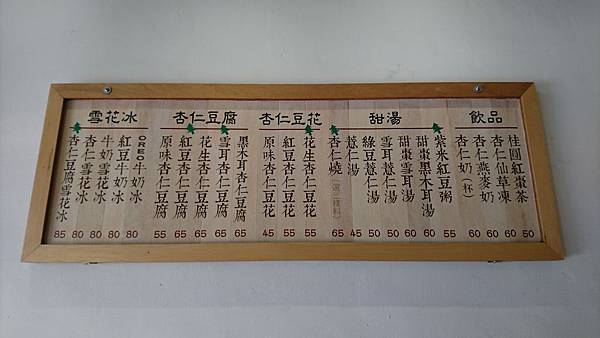 飲品
桂圓紅棗茶 50
杏仁仙草凍 60
杏仁燕麥奶 60
杏仁奶(杯) 60
甜湯
紫米紅豆粥 55
甜棗黑木耳湯 60
甜棗雪耳湯 60
雪耳薏仁湯 50
綠豆薏仁湯 50
薏仁湯 45
杏仁燒(選三種料) 65
杏仁豆花
花生杏仁豆花 55
紅豆杏仁豆花 55
原味杏仁豆花 45
杏仁豆腐
黑木耳杏仁豆腐 65
雪耳杏仁豆腐 65
花生杏仁豆腐 65
紅豆杏仁豆腐 65
原味杏仁豆腐 55
雪花冰
OREO牛奶冰 80
紅豆牛奶冰 80
牛奶雪花冰 80
杏仁雪花冰 80
杏仁豆腐雪花冰 85